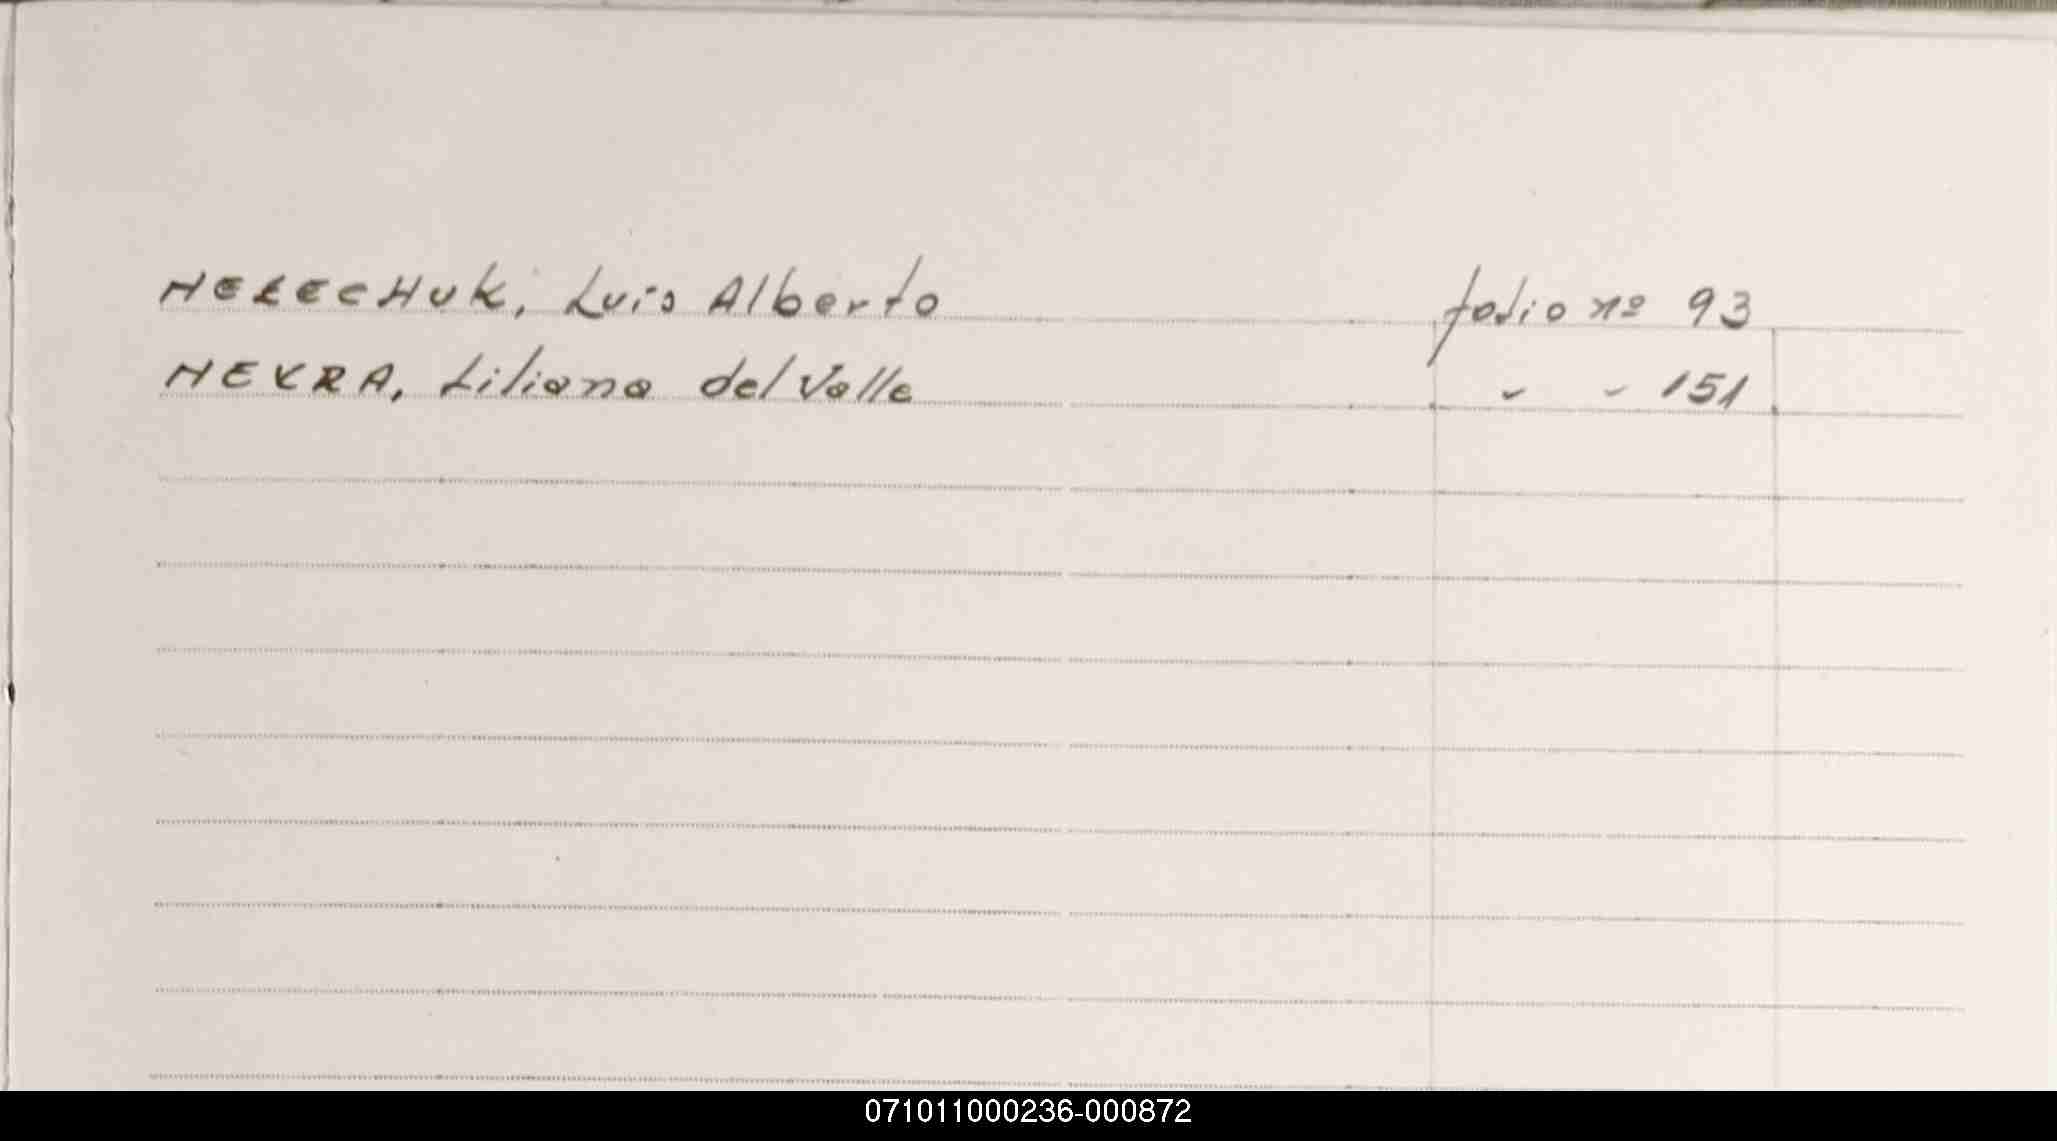 NELECHUK, Luis Alberto folio nº 93
NEYRA, Liliana del Valle " " 151
071011000236-000872